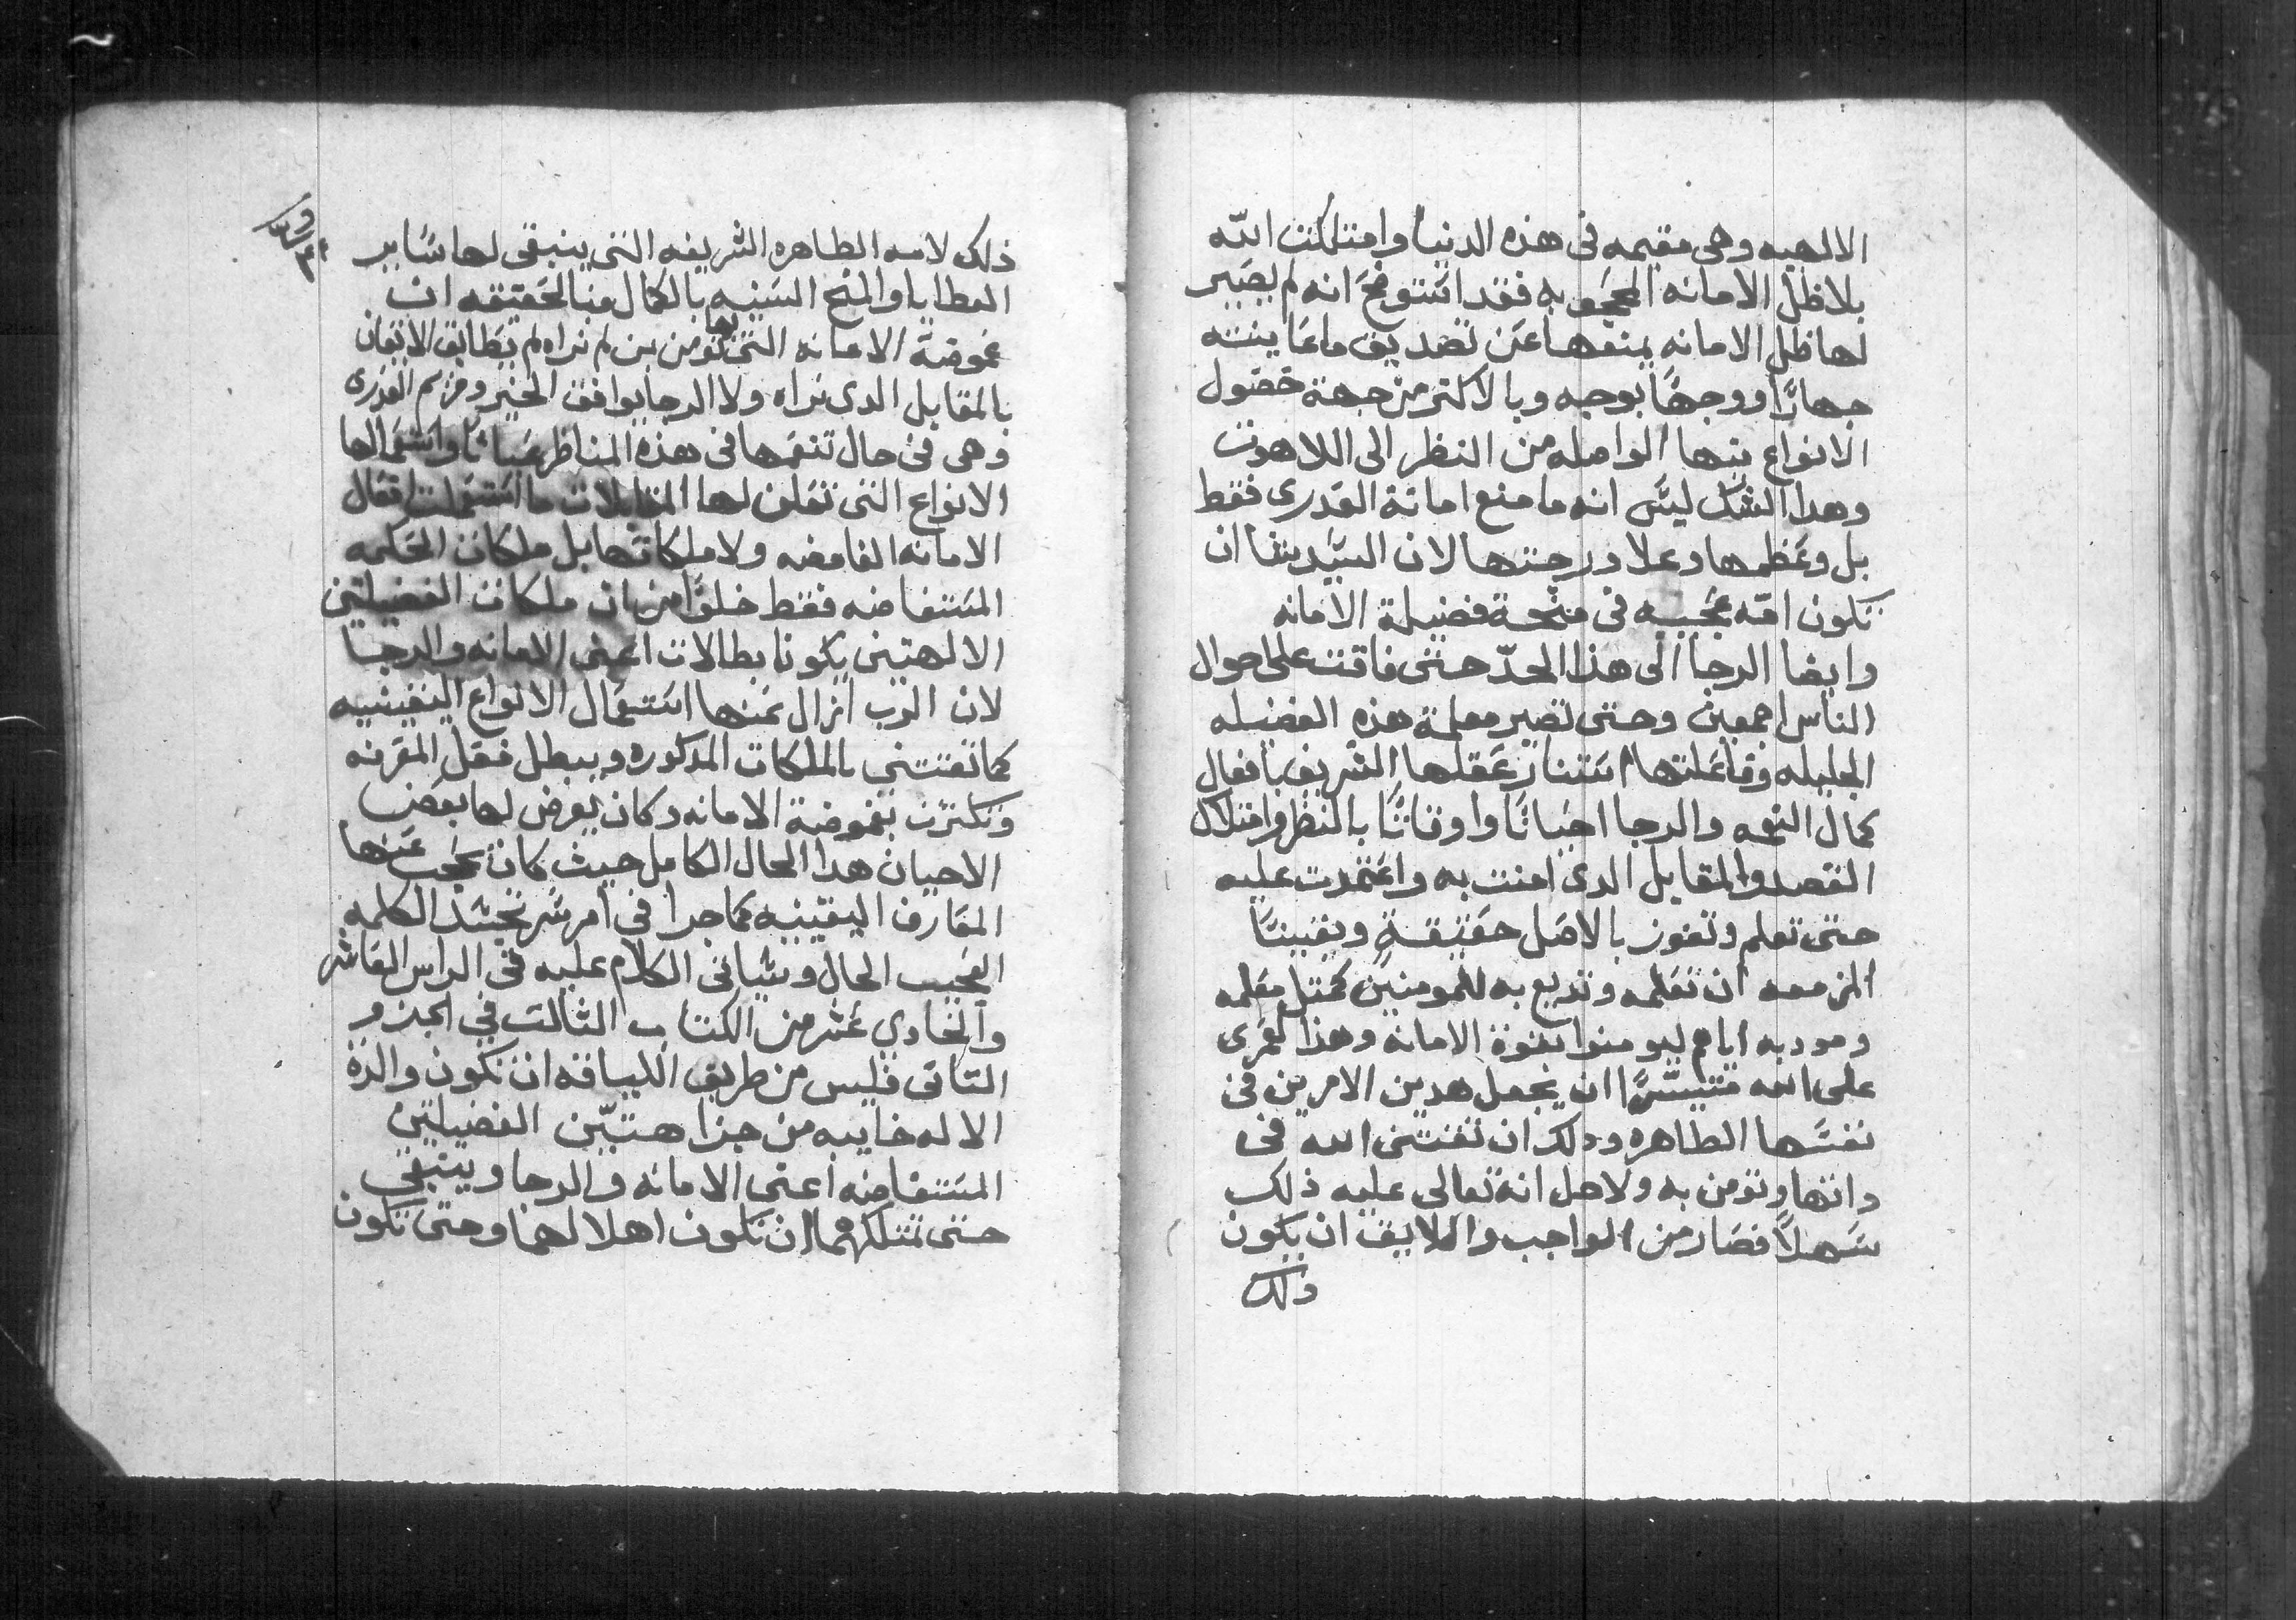 الالهيه وهى مقيمه فى هذه الدنيا وامتلكت الله
بلا ظل الامانه المحجوبه فقد استوضح انه لم يصير
لها ظل الامانه يمنعها عن تصديق ما عاينته
جهارًا ووجهًا بوجه وبالاكتر من جهة حصول
الانواع بها الواصله من النظر الى اللاهوت
وهدا الشك ليس انه ما منع امانة العدرى فقط
بل وعظمها وعلا درجتها لان السيد يشا ان
تكون امه عجيبه فى منحة فضيلة الامانه
وايضا الرجا الى هذا الحدّ حتى فاقت على احوال
الناس اجمعين وحتى تصير معلمة هذه الفضيله
الجليله وفاعلتها استنار عقلها الشريف بافعال
كمال النعمه والرجا احيانًا واوقاتًا بالنظر وامتلاك
القصد والمقابل الدى امنت به واعتمدت عليه
حتى تعلم وتفوز بالاصل حقيقةً ويقينًا
المزمعه ان تعلمه وتديع به للمومنين كمتل معلمه
ومودبه اياهم ليومنوا بقوة الامانه وهذا لعمرى
على الله متيسرًا ان يجعل هدين الامرين فى
نفسها الطاهره ودلك ان تقتنى الله فى
داتها وتومن به ولاجل انه تعالى عليه ذلك
سهلاً فصار من الواجب واللايق ان يكون
ذلك
ذلك لامه الطاهره الشريفه التى ينبغى لها ساير
العطايا والمنح السنيه بالكمال وبالحقيقه ان
غموضة الامانه التى بها نومن بمن لم نراه لم تطابق الايقان
بالمقابل الدى نراه ولا الرجا يوافق الخير ومريم العدرى
وهى فى حال تنعمها فى هذه المناظر عيانًا واستعمالها
الانواع التى تعلن لها المقابلات ما استعملت افعال
الامانه الغامضه ولا ملكاتها بل ملكات الحكمه
المستفاضه فقط خلوًا من ان ملكات الفضيلتين
الالهتين يكونا بطالات اعنى الامانه والرجا
لان الرب ازال عنها استعمال الانواع اليقينيه
كما تقتنى بالملكات المدكوره ويبطل فعل المعرفه
وتكترت بغموضة الامانه وكان يعرض لها بعض
الاحيان هدا الحال الكامل حيث كان يحجب عنها
المعارف اليقينيه كما جرا فى امر سر تجسد الكلمه
العجيب الحال وسياتى الكلام عليه فى الراس العاشر
والحادي عشر من الكتاب التالت فى الجزو
التانى فليس من طريق اللياقه ان تكون والدة
الاله خايبه من جزا هتيّن الفضيلتين
المستفاضه اعنى الامانه والرجا وينبغى
حتى تمتلكهما ان تكون اهلا لهما وحتى تكون